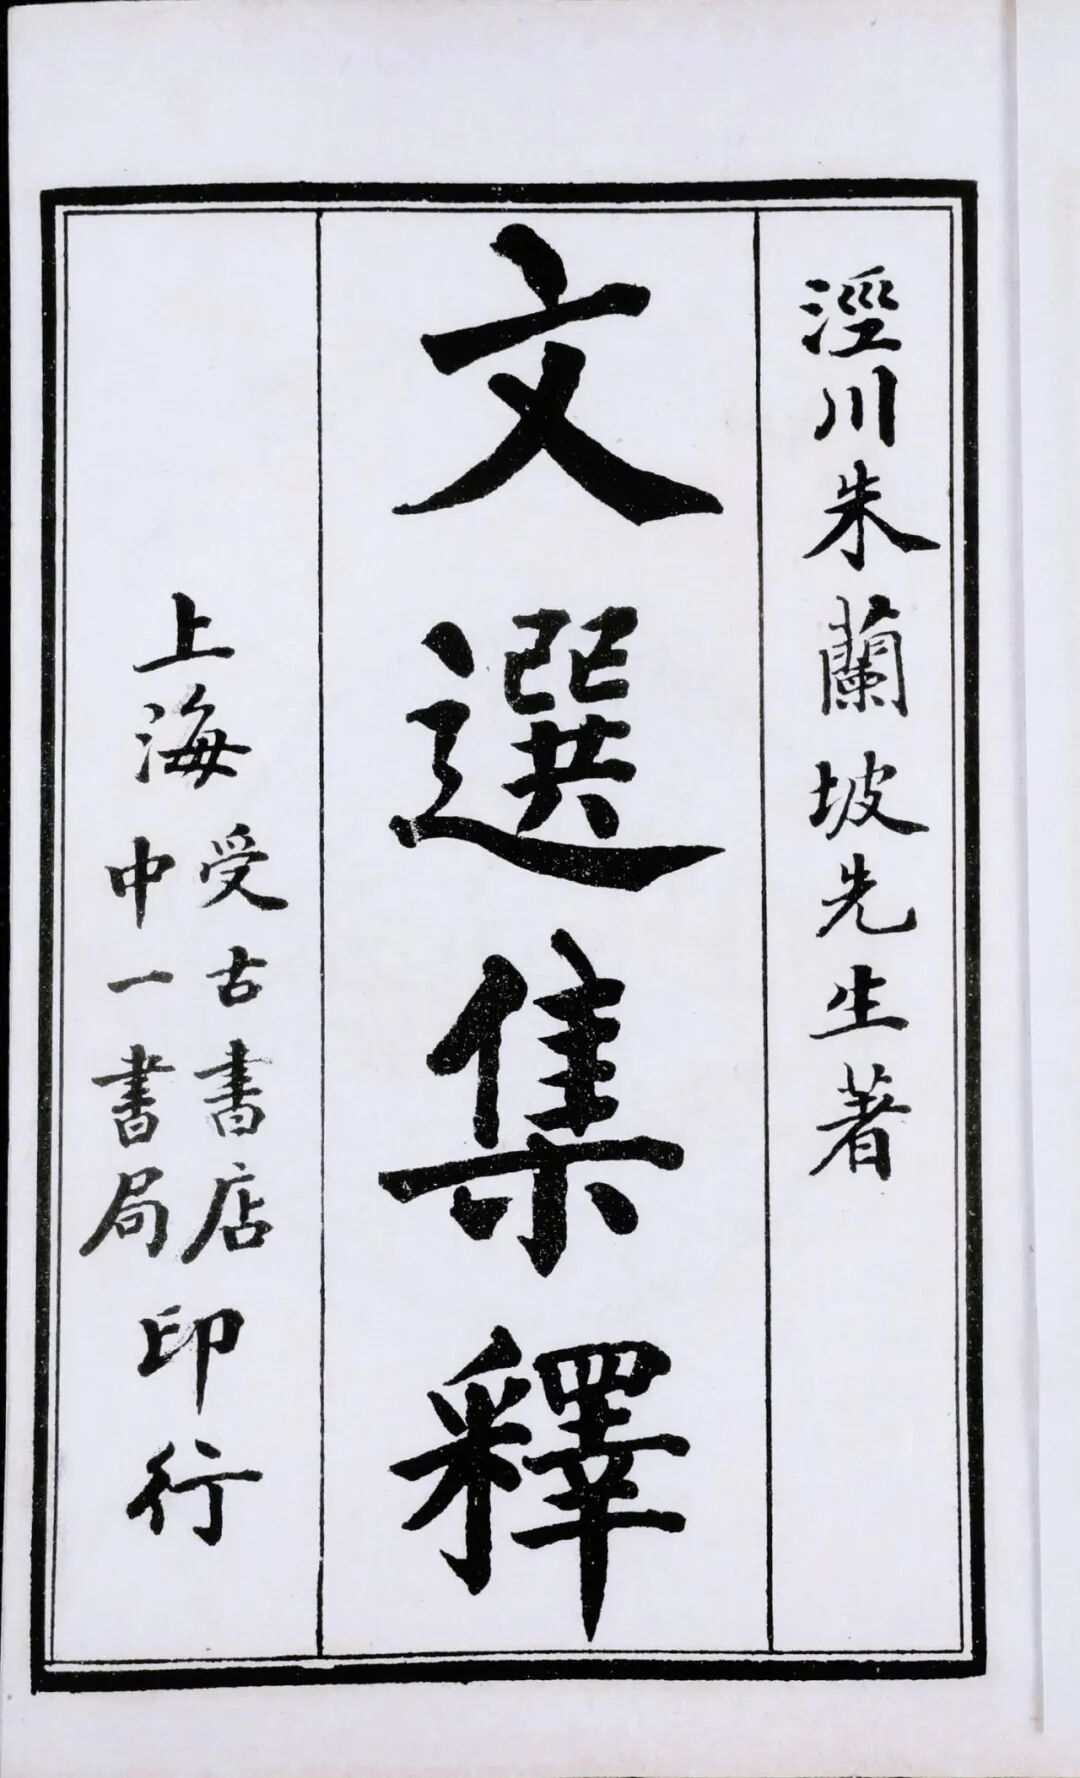 涇川朱蘭坡先生著
文選集釋
上海
受古書店
中一書局
印行